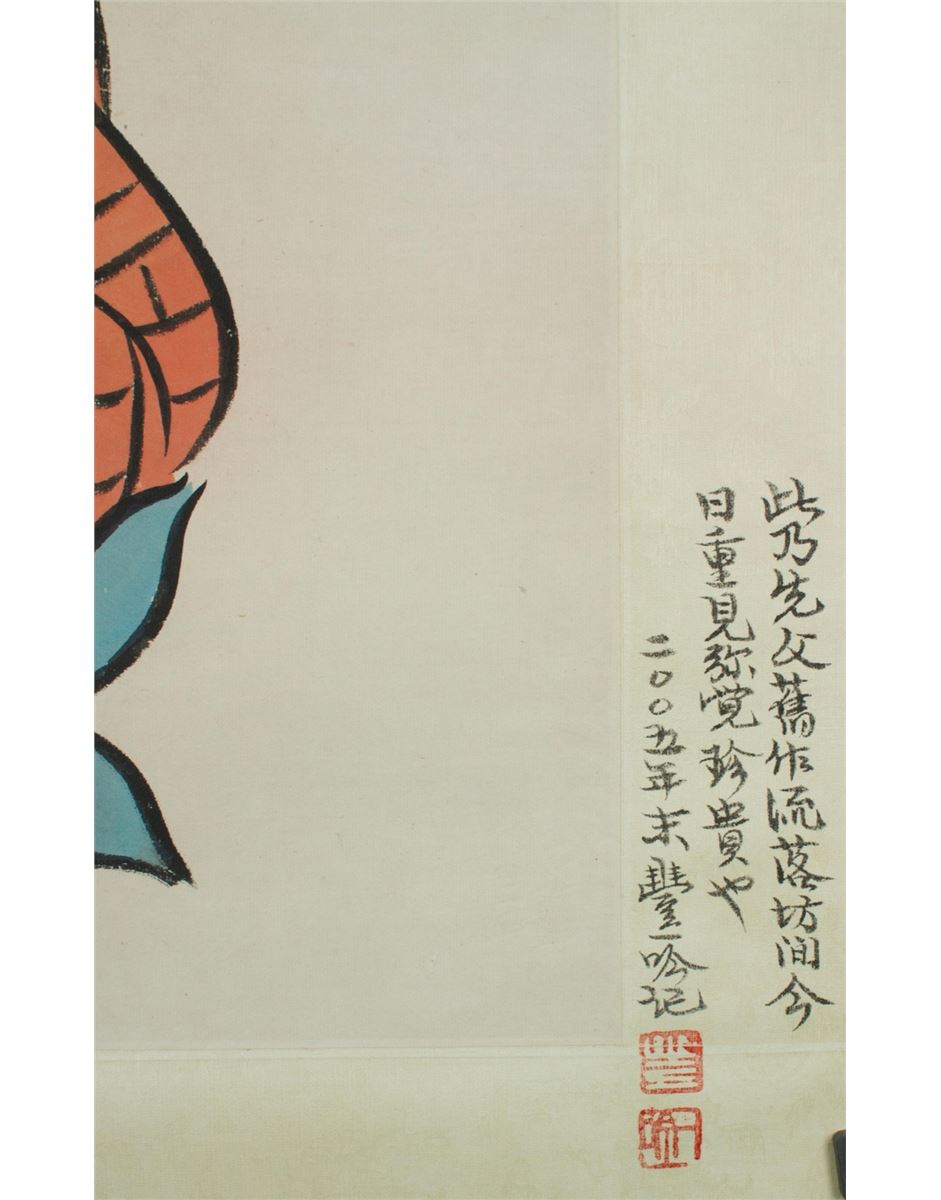 此乃先父舊作流落坊间今
日重見弥覺珍貴也
二〇〇五年末豐一吟记